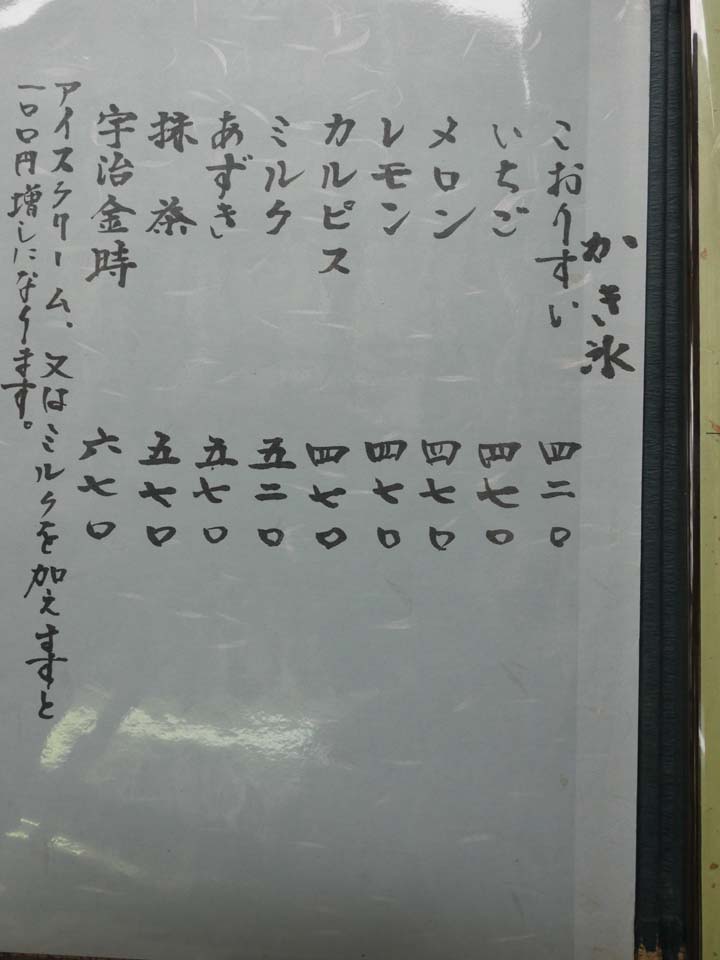 かき氷
こおりすい 四二〇
いちご 四七〇
メロン 四七〇
レモン 四七〇
カルピス 四七〇
ミルク 五二〇
あずき 五七〇
抹茶 五七〇
宇治金時 六七〇
アイスクリーム、又はミルクを加えますと
一〇〇円増しになります。